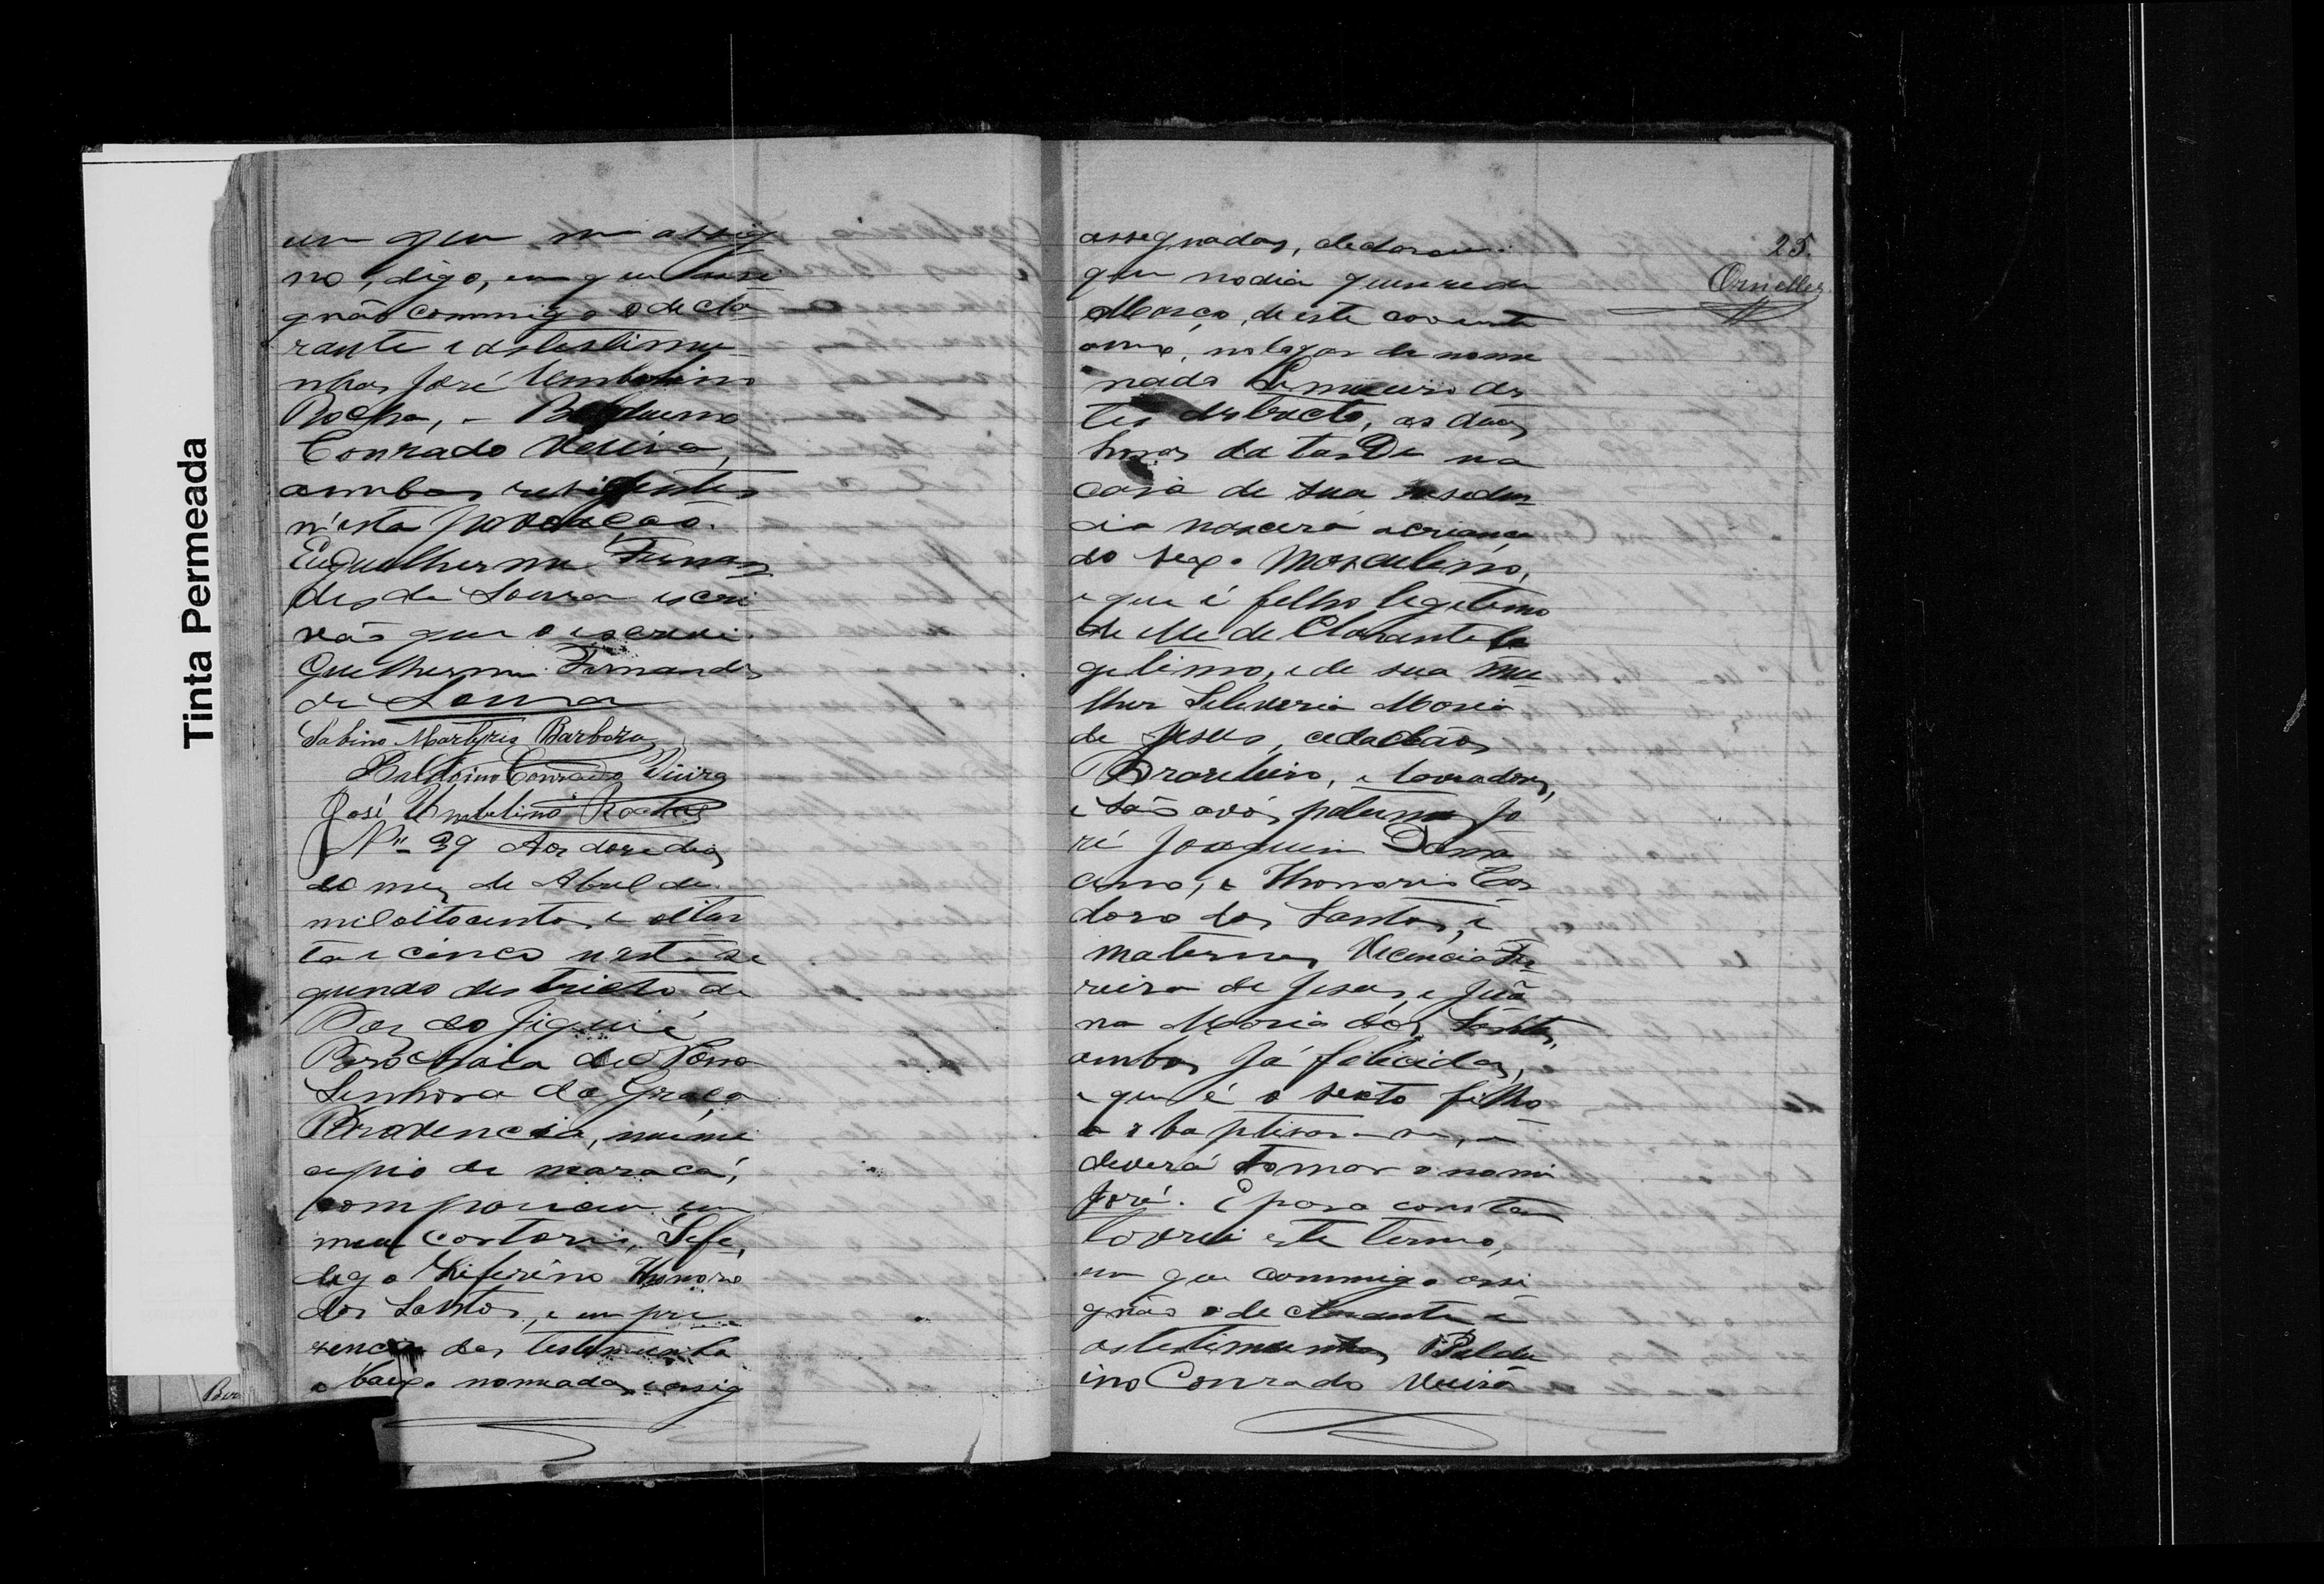 Tinta Permeada
em que me assig
no, digo, em que assi
gnão commigo o decla
rante e as testimu
nhas José Umbelino
Rocha, e Balduino
Conrado Vieira,
ambos residentes
n'esta povoação.
Eu Guilherme Fernan
des de Souza escri
vão que o escrevi.
Guilherme Fernandes
de Souza
Sabino Martyres Barboza
Balduino Conrado Vieira
José Umbelino Rocha
Nº 39 Aos doze dias
do mez de Abril de
mil oitocentos e oiten
ta e cinco n'este se
gundo destricto de
do Jiquiri
Parochaia de Nossa
Senhora da Graça
Provencia, muni
cipio de maracá,
compareceu em
meu cartorio, Sefe,
digo Siferino Honoro
dos Santos, e em pre
zencia das testemunha
abaixo nomiadas e assig
25.
Ornellas
assegnadas, declarou
que no dia quinze de
Março, deste corrente
anno, no lugar de nome
nado Limueiro des
tes destricto, as duas
horas da tarde na
casa de sua resedem
cia nascera a criança
do sexo Masculino,
e que é filho legetimo
de lle de Clarante le
getimo, e de sua mu
lher Seleveria Maria
de Jesus, cedadãos
Brazileiro, e lavradores,
e são avós paternos Jo
zé Joaquim Dama
ceno, e Honoria Car
doso dos Santos, e
maternos Vicencia Fer
reira de Jesus, e Jua
na Maria dos Santos,
ambos já falicidos,
e que é o sexto filho
a baptisar-se, e
deverá tomar o nome
José. E para constar
lavrei este termo,
em que commigo assi
gnão o declarante e
as testimunhas Baldu
ino Conrado Vieira